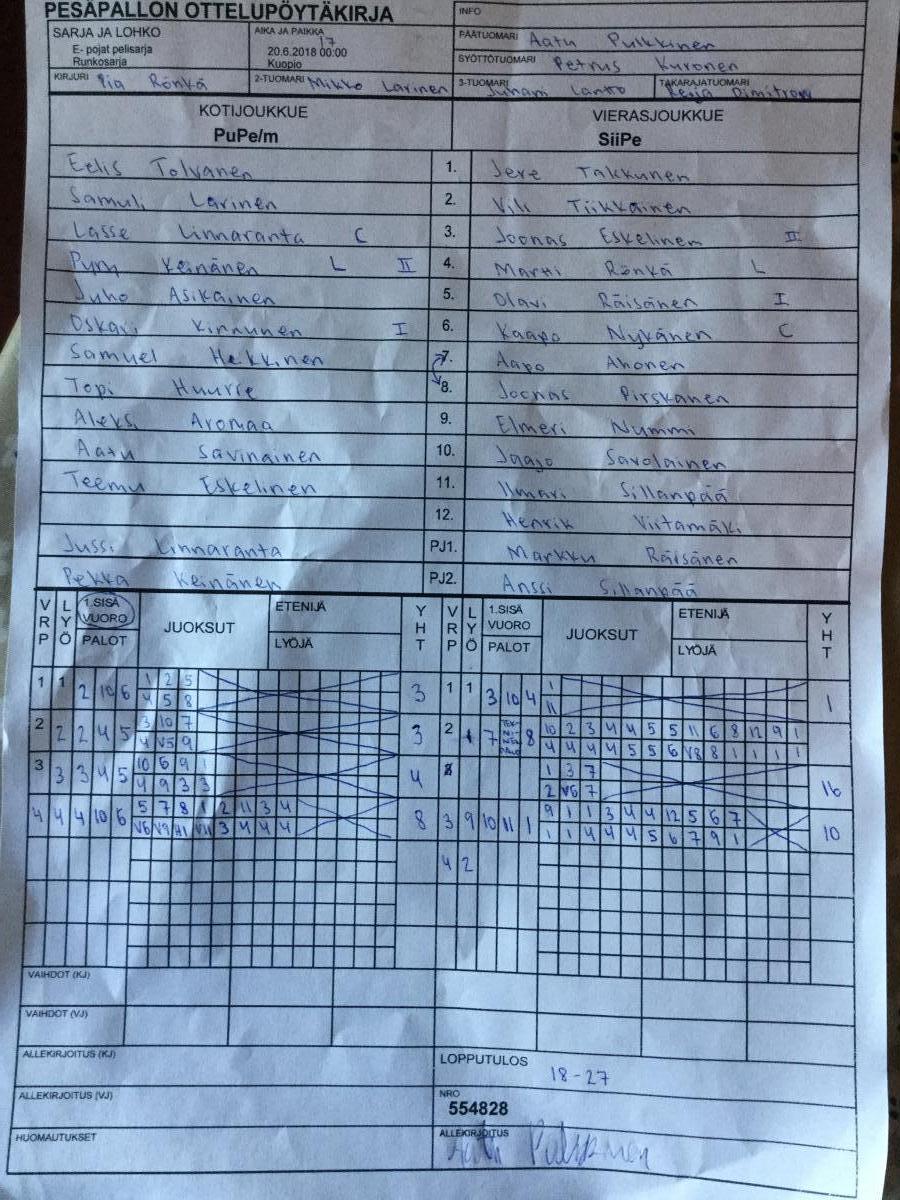 PESÄPALLON OTTELUPÖYTÄKIRJA
INFO
SARJA JA LOHKO
E- pojat pelisarja
Runkosarja
AIKA JA PAIKKA
17
20.6.2018 00:00
Kuopio
PÄÄTUOMARI Aatu Pulkkinen
SYÖTTÖTUOMARI Petrus Kuronen
KIRJURI Pia Rönkä
2-TUOMARI Mikko Larinen
3-TUOMARI Juhani Lantto
TAKARAJATUOMARI Dimitrow
KOTIJOUKKUE
PuPe/m
VIERASJOUKKUE
SiiPe
Eelis Tolvanen 1. Jere Takkunen
Samuli Larinen 2. Vili Tiikkainen
Lasse Linnaranta C 3. Joonas Eskelinen II
Pyry Keinänen L II 4. Martti Rönkä L
Juho Asikainen 5. Olavi Räisänen I
Oskari Kinnunen I 6. Kaapo Nykänen C
Samuel Heikkinen 7. Aapo Ahonen
Topi Huurre 8. Joonas Pirskanen
Aleksi Aromaa 9. Elmeri Nummi
Aatu Savinainen 10. Jaajo Savolainen
Teemu Eskelinen 11. Ilmari Sillanpää
12. Henrik Viitamäki
Jussi Linnaranta PJ1. Markku Räisänen
Pekka Keinänen PJ2. Anssi Sillanpää
VRP LYÖ 1.SISÄ VUORO PALOT JUOKSUT ETENIJÄ LYÖJÄ YHT VRP LYÖ 1.SISÄ VUORO PALOT JUOKSUT ETENIJÄ LYÖJÄ YHT
1 1 2 10 6 1 2 5 3 1 1 3 10 4 1 1
4 5 8 11
2 2 2 4 5 3 10 7 3 2 1 7 TEKNINEN PALO 8 10 2 3 4 4 5 5 11 6 8 12 9 1
4 V5 9 4 4 4 4 5 5 6 V8 8 1 1 1 1
3 3 3 4 5 10 6 9 1 4 1 3 7 16
4 9 3 3 2 V6 7
4 4 4 10 6 5 7 8 1 2 11 3 4 8 3 9 10 11 1 9 1 1 3 4 4 12 5 6 7 10
V6 V9 H1 V11 3 4 4 4 1 1 4 4 4 5 6 7 9 1
4 2
VAIHDOT (KJ)
VAIHDOT (VJ)
ALLEKIRJOITUS (KJ)
LOPPUTULOS
18-27
ALLEKIRJOITUS (VJ)
NRO
554828
HUOMAUTUKSET
ALLEKIRJOITUS
Aatu Pulkkinen